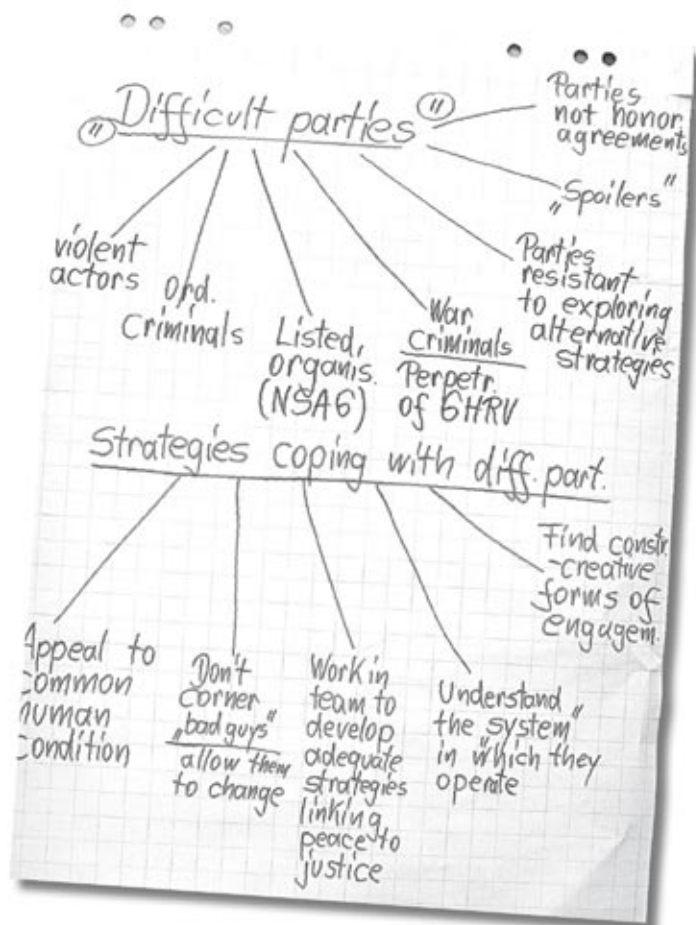 "Difficult parties"
Parties
not honor
agreements
„Spoilers"
Parties
resistant
to exploring
alternative
strategies
War
Criminals
Perpetr.
of GHRV
Listed,
organis.
(NSAG)
Ord.
Criminals
violent
actors
Strategies coping with diff. part.
Appeal to
common
human
condition
Don't
corner
„bad guys"
allow them
to change
Work in
team to
develop
adequate
strategies
linking
peace to
justice
Understand
the „system"
in which they
operate
Find constr.
-creative
forms of
engagem.